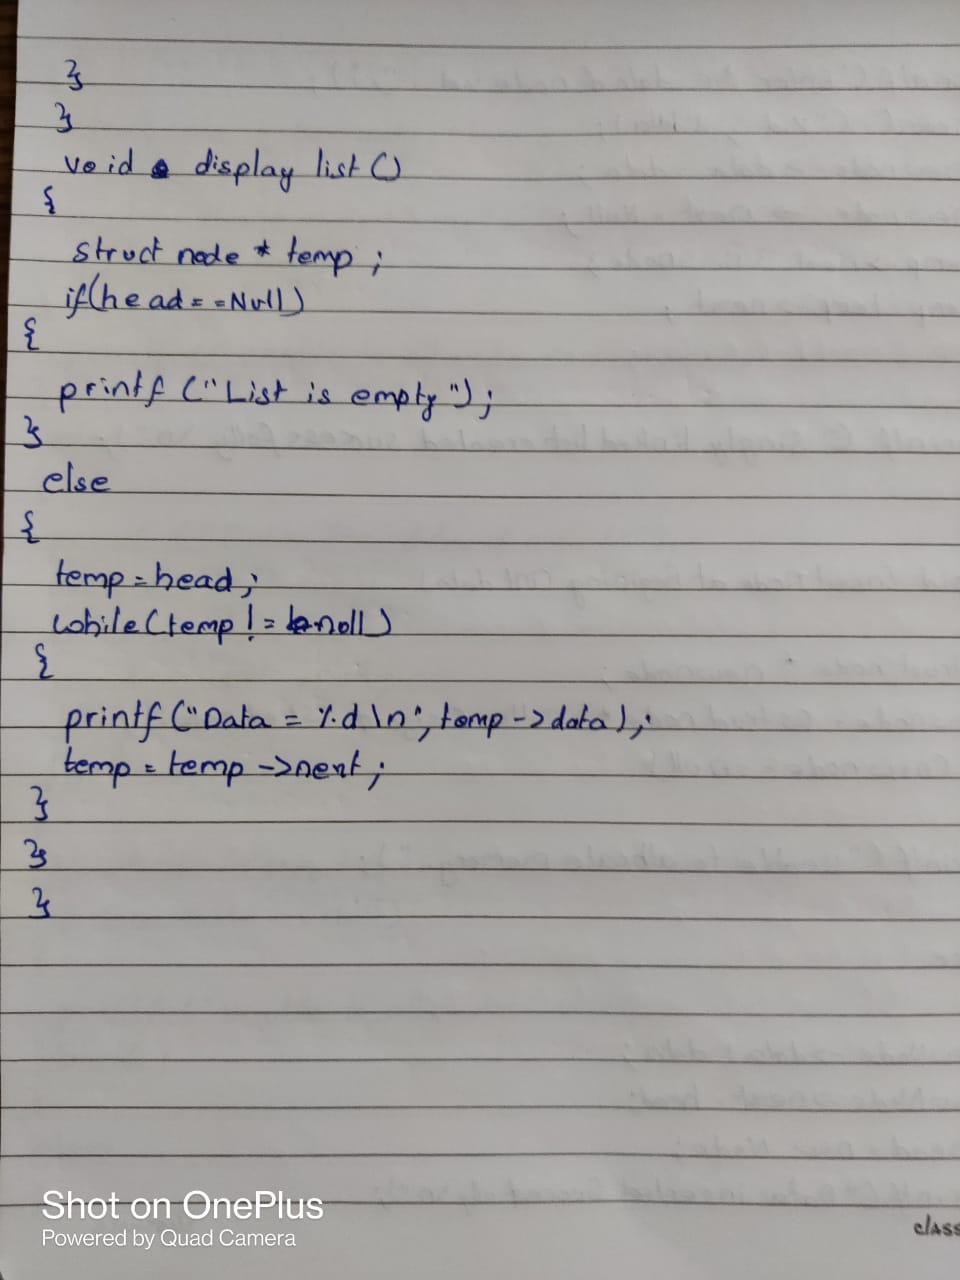 }
}
void display list ()
{
struct node * temp ;
if(head = = Null)
{
printf ("List is empty");
}
else
{
temp = head ;
while (temp ! = null)
{
printf ("Data = %d \n", temp -> data) ;
temp = temp -> next ;
}
}
}
Shot on OnePlus
Powered by Quad Camera
class